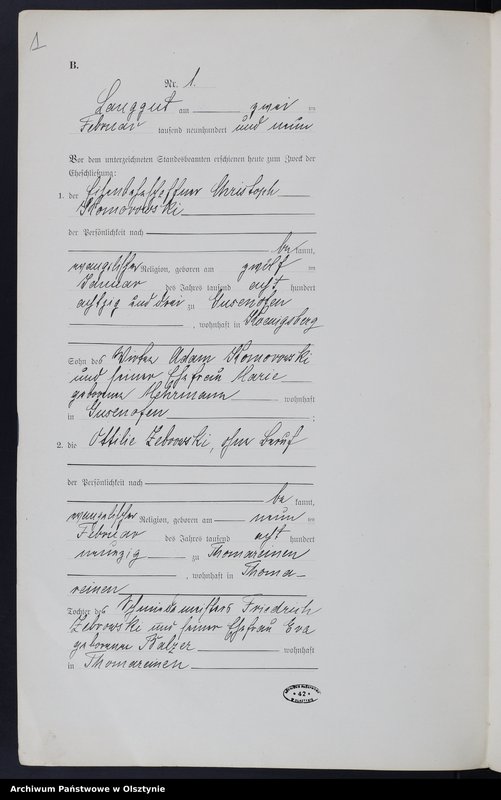 1
B.
Nr. 1.
Langgut am zwei ten
Februar tausend neunhundert und neun
Vor dem unterzeichneten Standesbeamten erschienen heute zum Zweck der
Eheschließung:
1. der Christoph
Skomorowski
der Persönlichkeit nach
be kannt,
evangelischer Religion, geboren am zwölf ten
Januar des Jahres tausend acht hundert
achtzig und drei zu Gusenofen
, wohnhaft in Koenigsberg
Sohn des Wirten Adam Skomorowski
und seiner Ehefrau Marie
geborenen Mehrmann wohnhaft
in Gusenofen ;
2. die Ottilie Zebrowski, ohne Beruf
der Persönlichkeit nach
be kannt,
evangelischer Religion, geboren am neun ten
Februar des Jahres tausend acht hundert
neunzig zu Thomareinen
, wohnhaft in Thoma-
reinen
Tochter des Schmiedemeisters Friedrich
Zebrowski und seiner Ehefrau Eva
geborenen Balzer wohnhaft
in Thomareinen
* 42 *
Archiwum Państwowe w Olsztynie